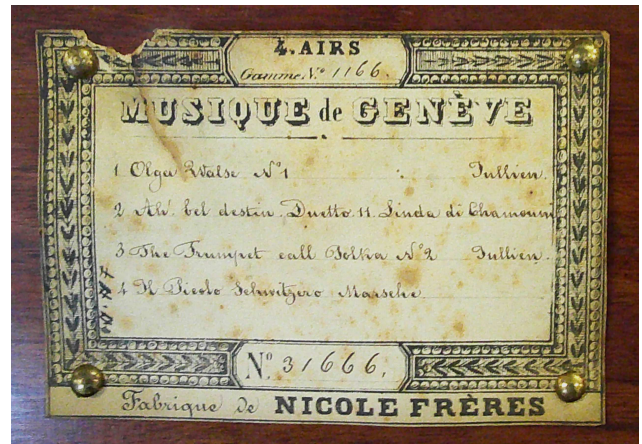 4. AIRS
Gamme N.º 1166.
MUSIQUE de GENÈVE
1 Olga Walse Nº 1 Jullien.
2 Ah! bel destin. Duetto. 11. Linda di Chamouni
3 The Trumpet call Polka Nº 2 Jullien.
4 Il Picolo Schwitzero Marsche.
Nº 31666.
Fabrique de NICOLE FRÈRES